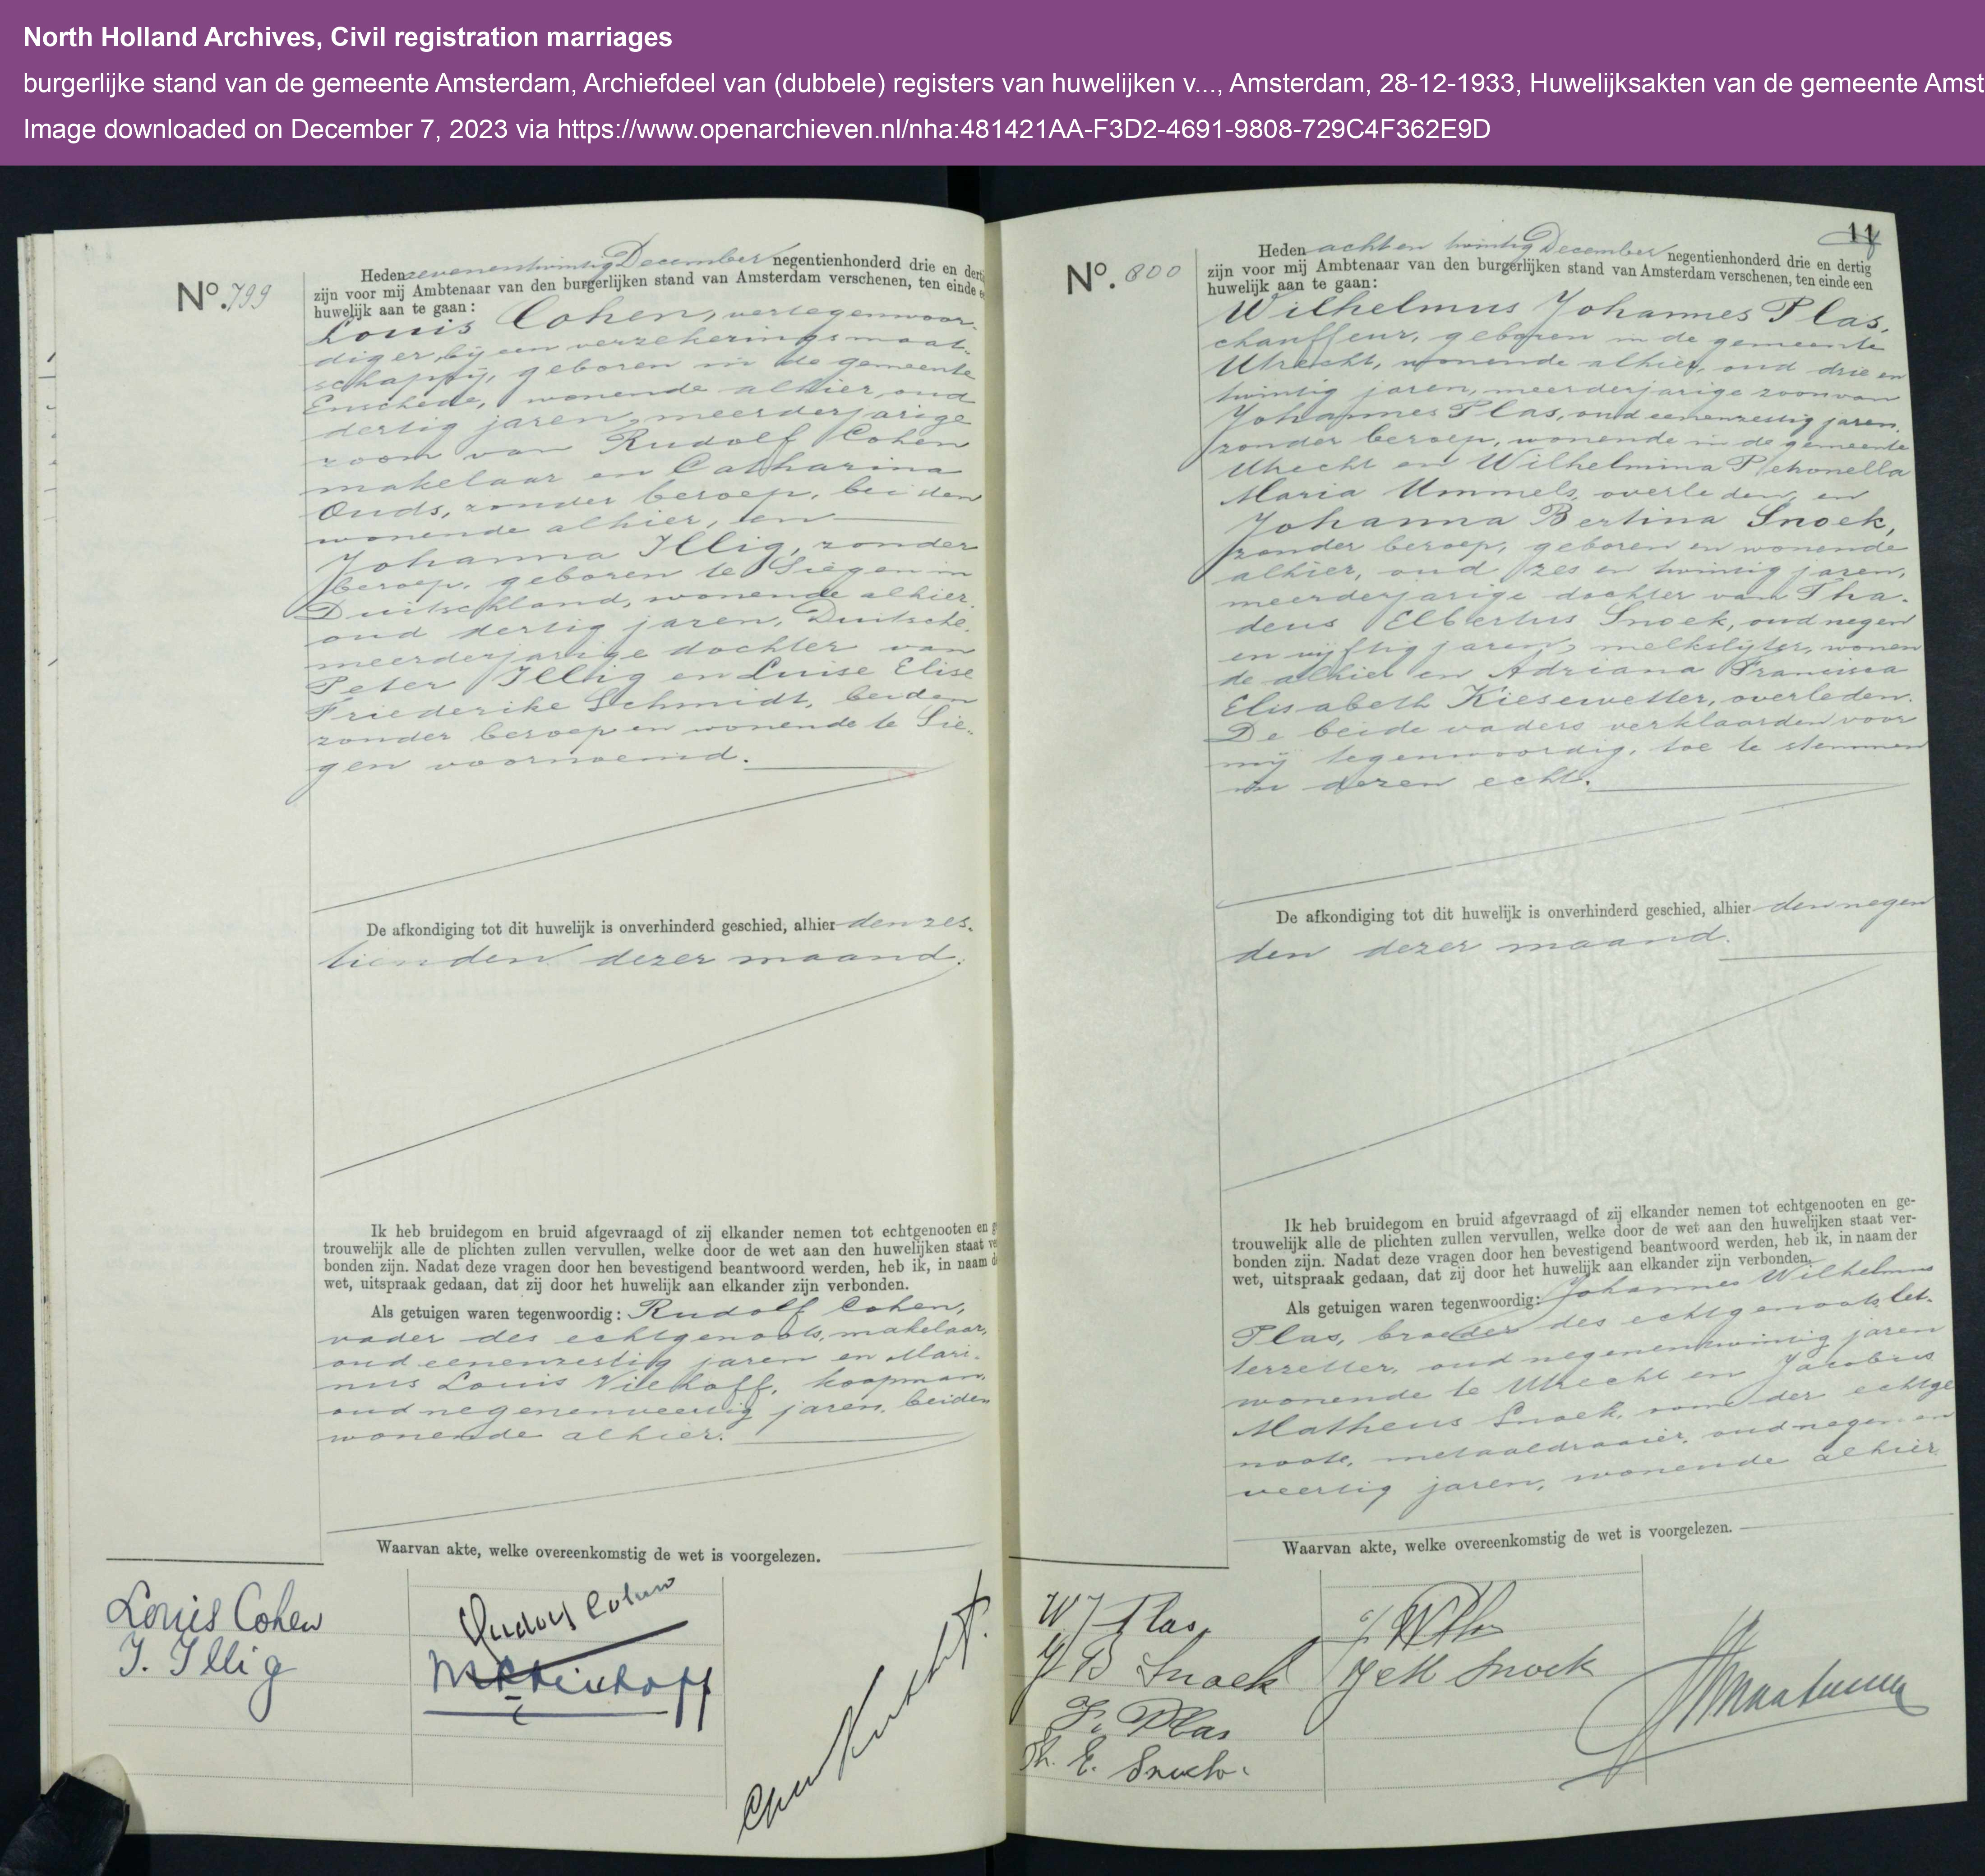 North Holland Archives, Civil registration marriages
burgerlijke stand van de gemeente Amsterdam, Archiefdeel van (dubbele) registers van huwelijken v..., Amsterdam, 28-12-1933, Huwelijksakten van de gemeente Amst
Image downloaded on December 7, 2023 via https://www.openarchieven.nl/nha:481421AA-F3D2-4691-9808-729C4F362E9D
No. 799
Heden zevenentwintig December negentienhonderd drie en derti
zijn voor mij Ambtenaar van den burgerlijken stand van Amsterdam verschenen, ten einde e
huwelijk aan te gaan:
Louis Cohen, vertegenwoor-
diger bij een verzekeringsmaat-
schappij, geboren in de gemeente
Enschede, wonende alhier, oud
dertig jaren, meerderjarige
zoon van Rudolf Cohen
makelaar en Catharina
Ouds, zonder beroep, beiden
wonende alhier, en
Johanna Illig, zonder
beroep, geboren te Siegen in
Duitschland, wonende alhier,
oud dertig jaren, Duitsche,
meerderjarige dochter van
Peter Illig en Luise Elise
Friederike Schmidt, beiden
zonder beroep en wonende te Sie-
gen voornoemd.
De afkondiging tot dit huwelijk is onverhinderd geschied, alhier den zes-
tienden dezer maand.
Ik heb bruidegom en bruid afgevraagd of zij elkander nemen tot echtgenooten en g
trouwelijk alle de plichten zullen vervullen, welke door de wet aan den huwelijken staat ve
bonden zijn. Nadat deze vragen door hen bevestigend beantwoord werden, heb ik, in naam d
wet, uitspraak gedaan, dat zij door het huwelijk aan elkander zijn verbonden.
Als getuigen waren tegenwoordig: Rudolf Cohen,
vader des echtgenoots, makelaar,
oud eenenzestig jaren en Mari-
nus Louis Viehoff, koopman,
oud negenenveertig jaren, beiden
wonende alhier.
Waarvan akte, welke overeenkomstig de wet is voorgelezen.
Louis Cohen
J. Illig
Rudolf Cohen
11
No. 800
Heden acht en twintig December negentienhonderd drie en dertig
zijn voor mij Ambtenaar van den burgerlijken stand van Amsterdam verschenen, ten einde een
huwelijk aan te gaan:
Wilhelmus Johannes Plas,
chauffeur, geboren in de gemeente
Utrecht, wonende alhier, oud drie en
twintig jaren, meerderjarige zoon van
Johannes Plas, oud eenenzestig jaren,
zonder beroep, wonende in de gemeente
Utrecht en Wilhelmina Petronella
Maria Ummels, overleden, en
Johanna Bertina Snoek,
zonder beroep, geboren en wonende
alhier, oud zes en twintig jaren,
meerderjarige dochter van Tha-
deus Elbertus Snoek, oud negen
en vijftig jaren, melkslijter, wonen
de alhier en Adriana Francisca
Elisabeth Kiesewetter, overleden.
De beide vaders verklaarden voor
mij tegenwoordig, toe te stemmen
in dezen echt.
De afkondiging tot dit huwelijk is onverhinderd geschied, alhier den negen
den dezer maand.
Ik heb bruidegom en bruid afgevraagd of zij elkander nemen tot echtgenooten en ge-
trouwelijk alle de plichten zullen vervullen, welke door de wet aan den huwelijken staat ver-
bonden zijn. Nadat deze vragen door hen bevestigend beantwoord werden, heb ik, in naam der
wet, uitspraak gedaan, dat zij door het huwelijk aan elkander zijn verbonden.
Als getuigen waren tegenwoordig: Johannes Wilhelmus
Plas, broeder des echtgenoots, let-
terzetter, oud negenentwintig jaren
wonende te Utrecht en Jacobus
Matheus Snoek, oom der echtge
noote, metaaldraaier, oud negen en
veertig jaren, wonende alhier
Waarvan akte, welke overeenkomstig de wet is voorgelezen.
W J Plas
J B Snoek
J. Plas
Th. E. Snoek
J W Plas
J M Snoek